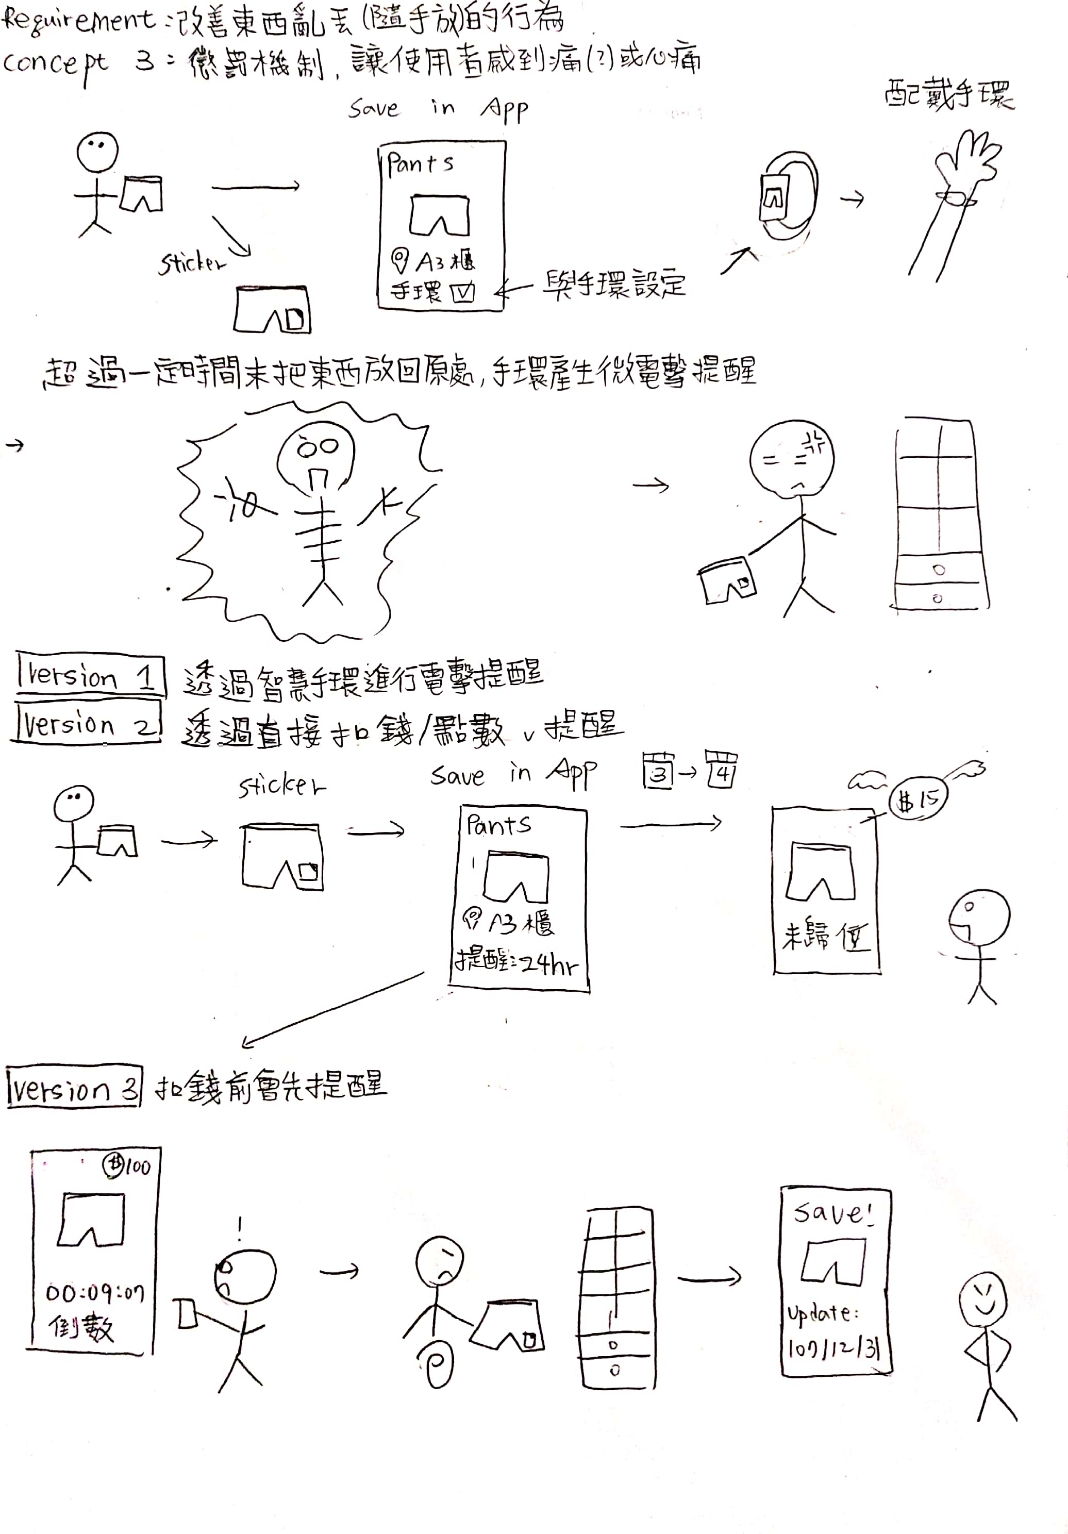 Requirement：改善東西亂丟(隨手放)的行為
concept 3：懲罰機制，讓使用者感到痛(?)或心痛
save in App
配戴手環
Pants
A3櫃
手環
與手環設定
sticker
超過一定時間未把東西放回原處，手環產生微電擊提醒
version 1 透過智慧手環進行電擊提醒
version 2 透過直接扣錢/點數、提醒
sticker
save in App
3→4
$15
Pants
A3櫃
提醒：24hr
未歸位
version 3 扣錢前會先提醒
$100
00:09:07
倒數
!
save!
update:
107/12/31